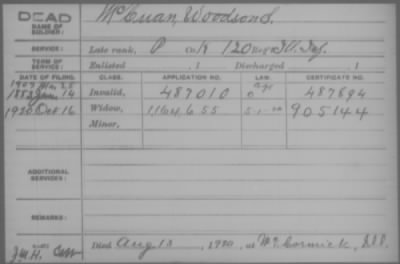 DEAD
NAME OF SOLDIER: McCuan, Woodson S.
SERVICE: Late rank, P Co. K 120 Reg't Ill. Inf.
TERM OF SERVICE: Enlisted , 1 Discharged , 1
DATE OF FILING. CLASS. APPLICATION NO. LAW. CERTIFICATE NO.
1907
1883 June 14 Invalid, 487010 487894
1920 Oct 16 Widow, 1164655 905144
Minor,
ADDITIONAL SERVICES:
REMARKS:
J.M.H. Died Aug 13, 1920, at McCormick, Ill.